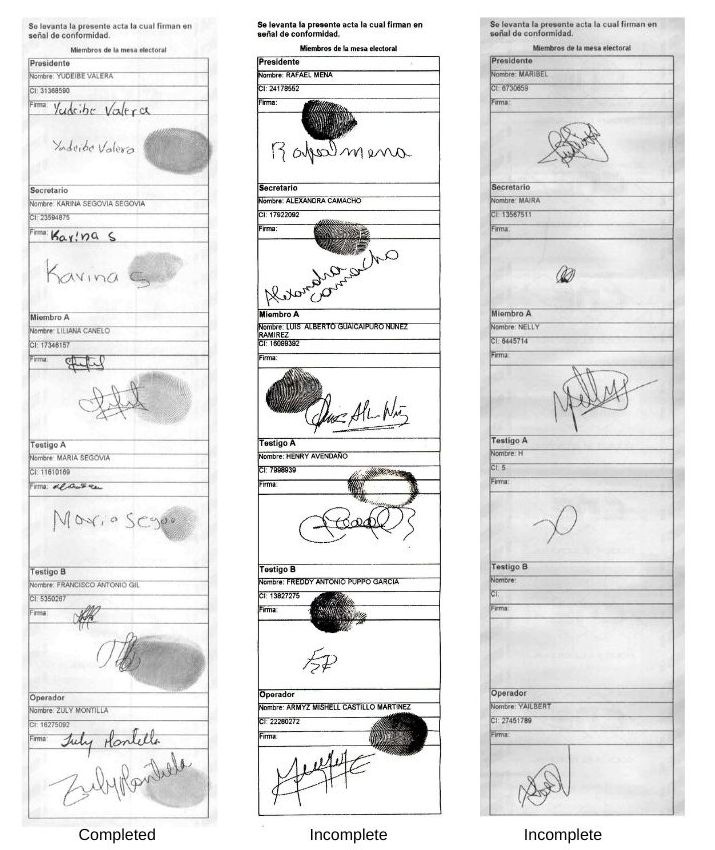 Se levanta la presente acta la cual firman en
señal de conformidad.
Miembros de la mesa electoral
Presidente
Nombre: YUDEIBE VALERA
CI: 31368590
Firma: Yudeibe Valera
Yudeibe Valera
Secretario
Nombre: KARINA SEGOVIA SEGOVIA
CI: 23594875
Firma: Karina S
Karina S
Miembro A
Nombre: LILIANA CANELO
CI: 17346157
Firma:
Testigo A
Nombre: MARIA SEGOVIA
CI: 11610169
Firma:
Maria Sego
Testigo B
Nombre: FRANCISCO ANTONIO GIL
CI: 5350267
Firma:
Operador
Nombre: ZULY MONTILLA
CI: 16275092
Firma: Zuly Montilla
Zuly Montilla
Completed
Se levanta la presente acta la cual firman en
señal de conformidad.
Miembros de la mesa electoral
Presidente
Nombre: RAFAEL MENA
CI: 24178552
Firma:
Rafael mena
Secretario
Nombre: ALEXANDRA CAMACHO
CI: 17922092
Firma:
Alexandra
camacho
Miembro A
Nombre: LUIS ALBERTO GUAICAIPURO NUNEZ
RAMIREZ
CI: 16099392
Firma:
Testigo A
Nombre: HENRY AVENDAÑO
CI: 7998939
Firma:
Testigo B
Nombre: FREDDY ANTONIO PUPPO GARCIA
CI: 13827275
Firma:
Operador
Nombre: ARMYZ MISHELL CASTILLO MARTINEZ
CI: 22280272
Firma:
Incomplete
Se levanta la presente acta la cual firman en
señal de conformidad.
Miembros de la mesa electoral
Presidente
Nombre: MARIBEL
CI: 6730659
Firma:
Secretario
Nombre: MAIRA
CI: 13567511
Firma:
Miembro A
Nombre: NELLY
CI: 6445714
Firma:
Nelly
Testigo A
Nombre: H
CI: 5
Firma:
Testigo B
Nombre:
CI:
Firma:
Operador
Nombre: YAILBERT
CI: 27451789
Firma:
Incomplete